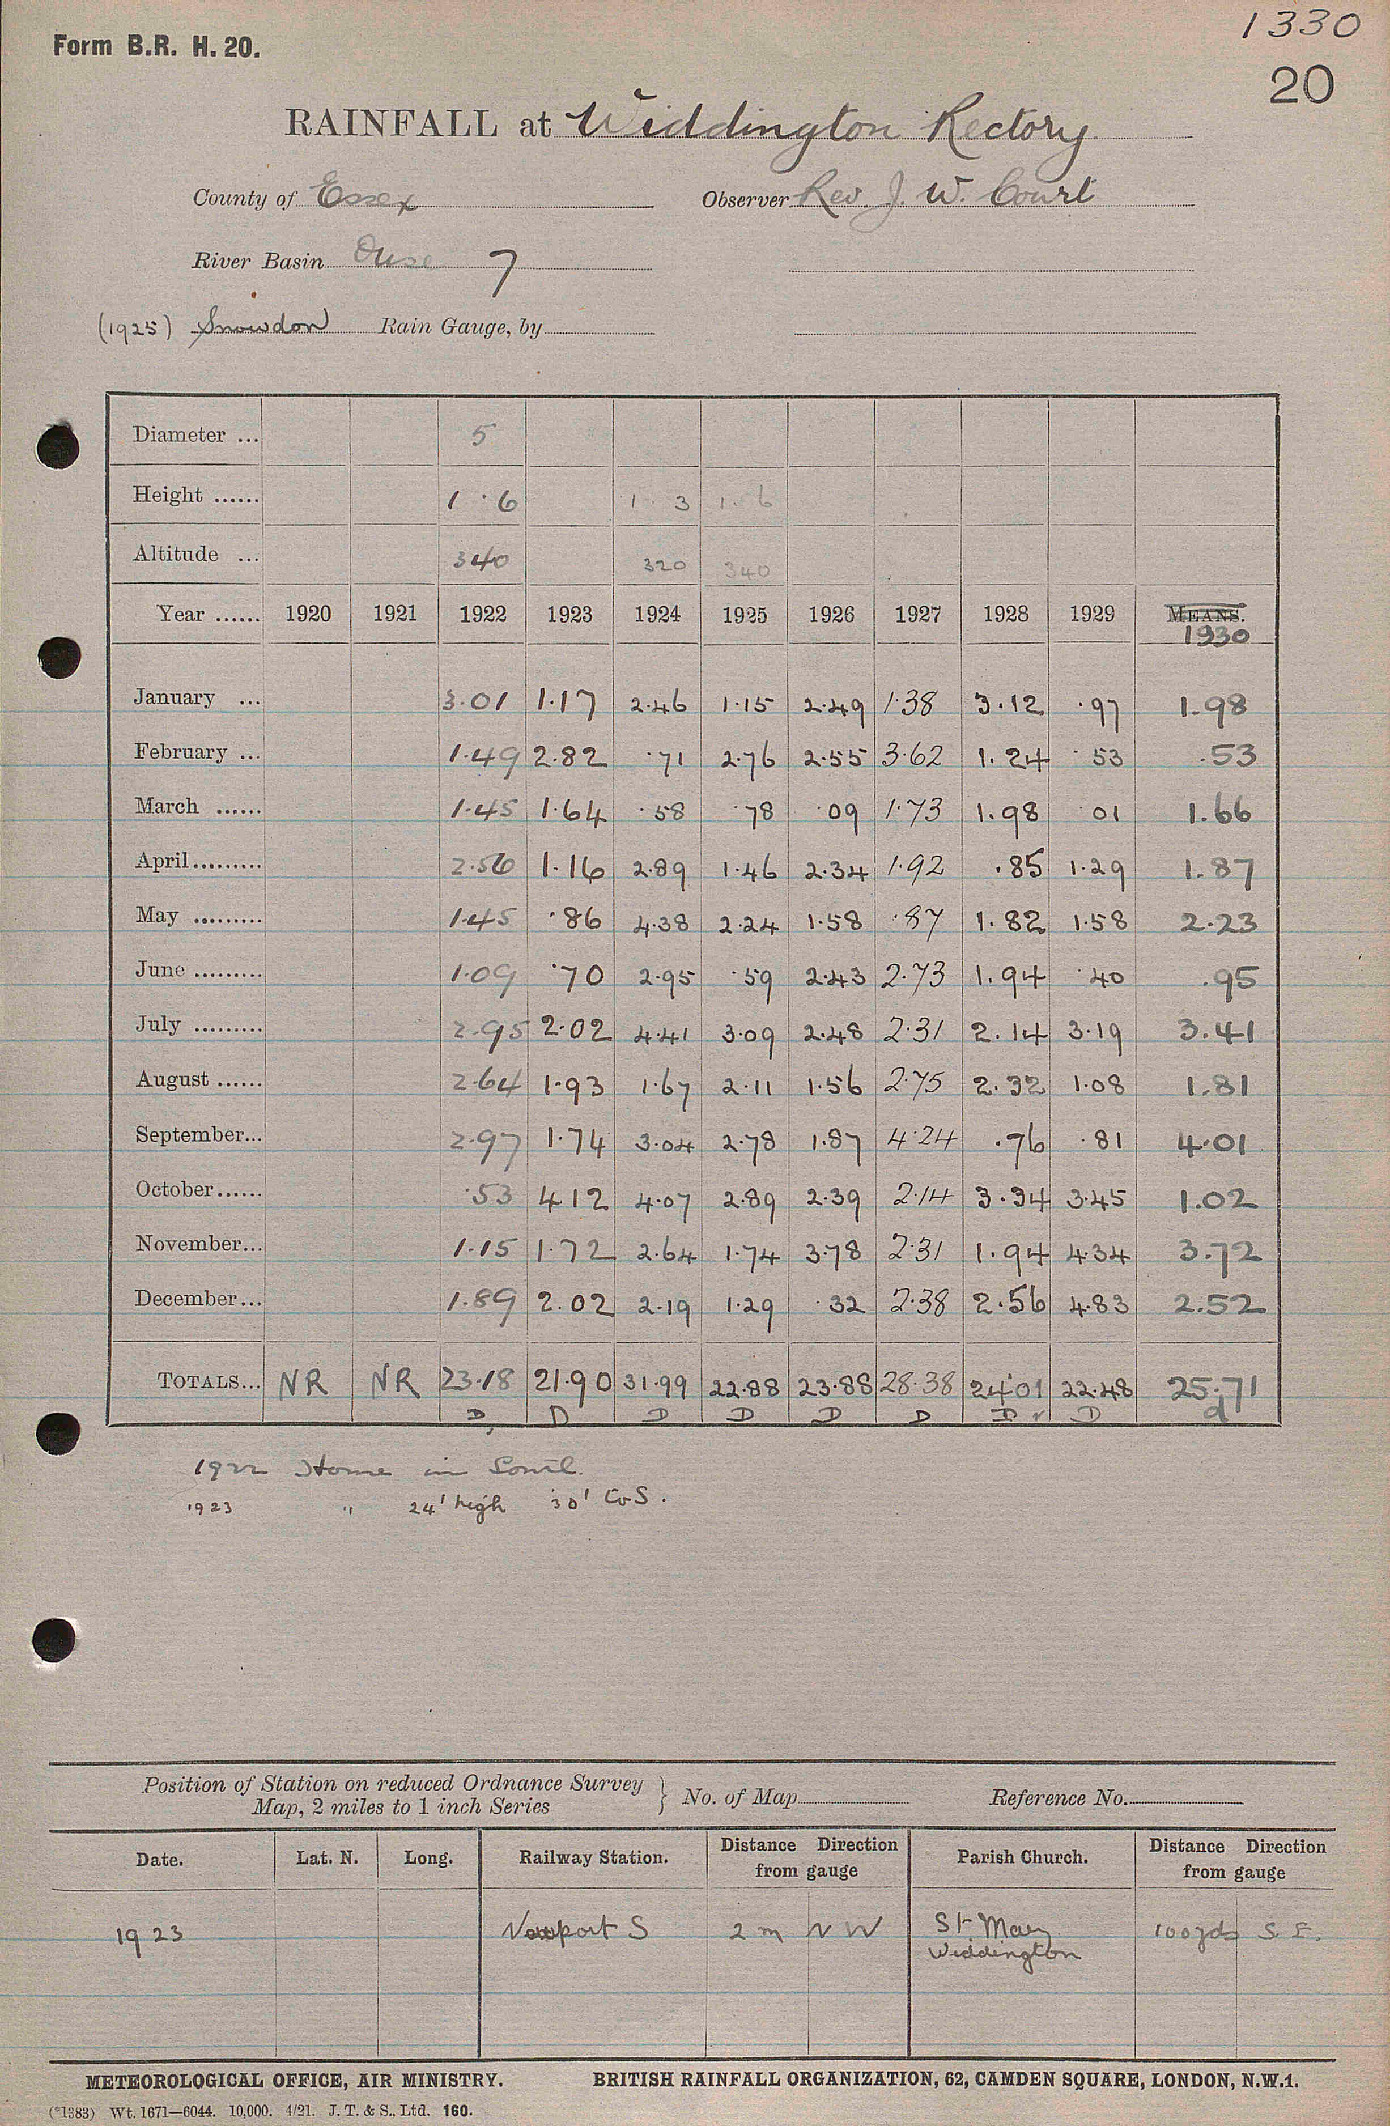 1330
Form B.R. H. 20.
20
RAINFALL at Widdington Rectory
County of Essex Observer Rev. J. W. Court
River Basin Ouse 7
(1925) Snowdon Rain Gauge, by
Diameter ... 5
Height ...... 1 · 6 1 · 3 1 · 6
Altitude ... 340 320 340
Year ...... 1920 1921 1922 1923 1924 1925 1926 1927 1928 1929 MEANS.
1930
January ... 3.01 1.17 2.46 1.15 2.49 1.38 3.12 .97 1.98
February ... 1.49 2.82 .71 2.76 2.55 3.62 1.24 .53 .53
March ...... 1.45 1.64 .58 .78 .09 1.73 1.98 01 1.66
April......... 2.56 1.16 2.89 1.46 2.34 1.92 .85 1.29 1.87
May ......... 1.45 .86 4.38 2.24 1.58 .87 1.82 1.58 2.23
June ......... 1.09 .70 2.95 .59 2.43 2.73 1.94 .40 .95
July ......... 2.95 2.02 4.41 3.09 2.48 2.31 2.14 3.19 3.41
August ...... 2.64 1.93 1.67 2.11 1.56 2.75 2.32 1.08 1.81
September... 2.97 1.74 3.04 2.78 1.87 4.24 .76 .81 4.01
October...... .53 4.12 4.07 2.89 2.39 2.14 3.34 3.45 1.02
November... 1.15 1.72 2.64 1.74 3.78 2.31 1.94 4.34 3.72
December... 1.89 2.02 2.19 1.29 .32 2.38 2.56 4.83 2.52
TOTALS... NR NR 23.18 21.90 31.99 22.88 23.88 28.38 24.01 22.48 25.71
D D D D D D D D d
1922 House in
1923 " 24' high 30' S.
Position of Station on reduced Ordnance Survey Map, 2 miles to 1 inch Series } No. of Map Reference No.
Date. Lat. N. Long. Railway Station. Distance Direction from gauge Parish Church. Distance Direction from gauge
1923 Newport S 2 m N W St Mary 100 yds S. E.
Widdington
METEOROLOGICAL OFFICE, AIR MINISTRY. BRITISH RAINFALL ORGANIZATION, 62, CAMDEN SQUARE, LONDON, N.W.1.
(*1383) Wt. 1671—6044. 10,000. 4/21. J. T. & S., Ltd. 160.